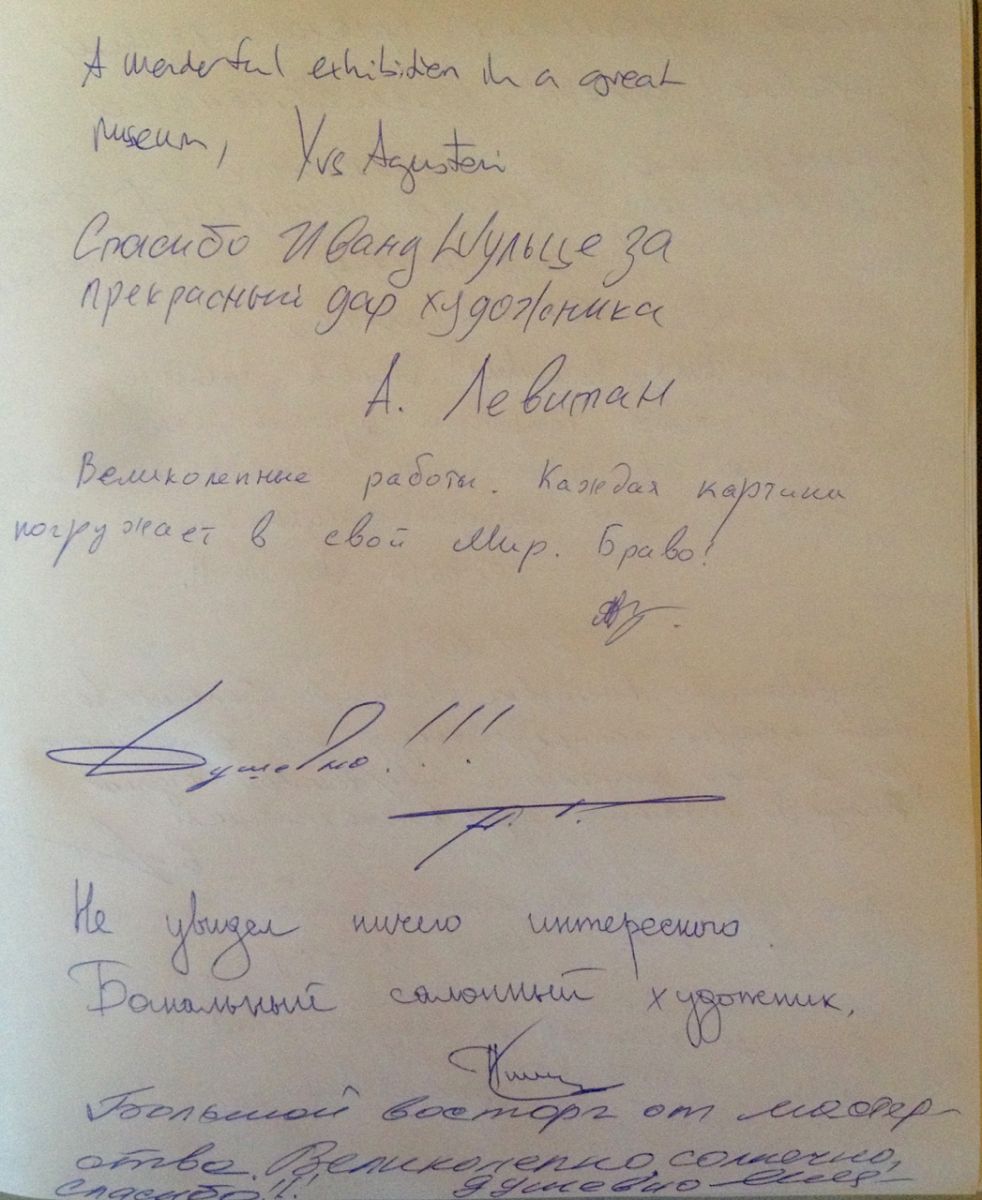 A wonderful exhibition in a great
museum, Yvs Agusten
Спасибо Ивану Шульце за
прекрасный дар художника
А. Левитан
Великолепные работы. Каждая картина
погружает в свой Мир. Браво!
Душевно!!!
Не увидел ничего интересного.
Банальный салонный художник,
Большой восторг от мастер-
ства. Великолепно, солнечно,
спасибо!!! душевно